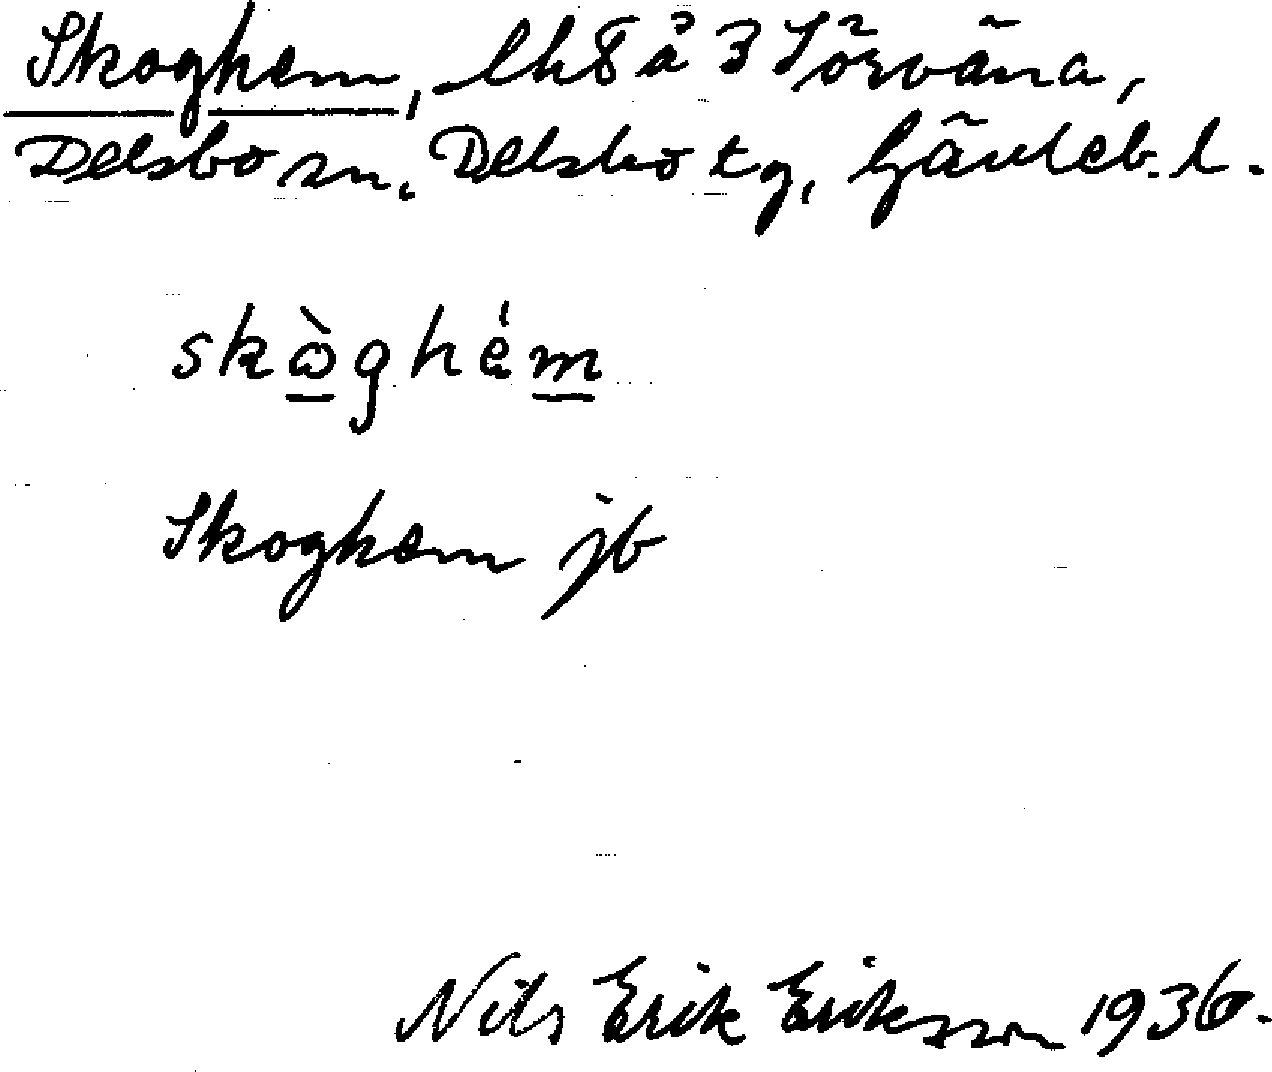 Skoghem, lht å 3 Sörväna,
Delsbo sn, Delsbo tg, Gävleb. l.
skòghém
Skoghem jb
Nils Erik Eriksson 1936.